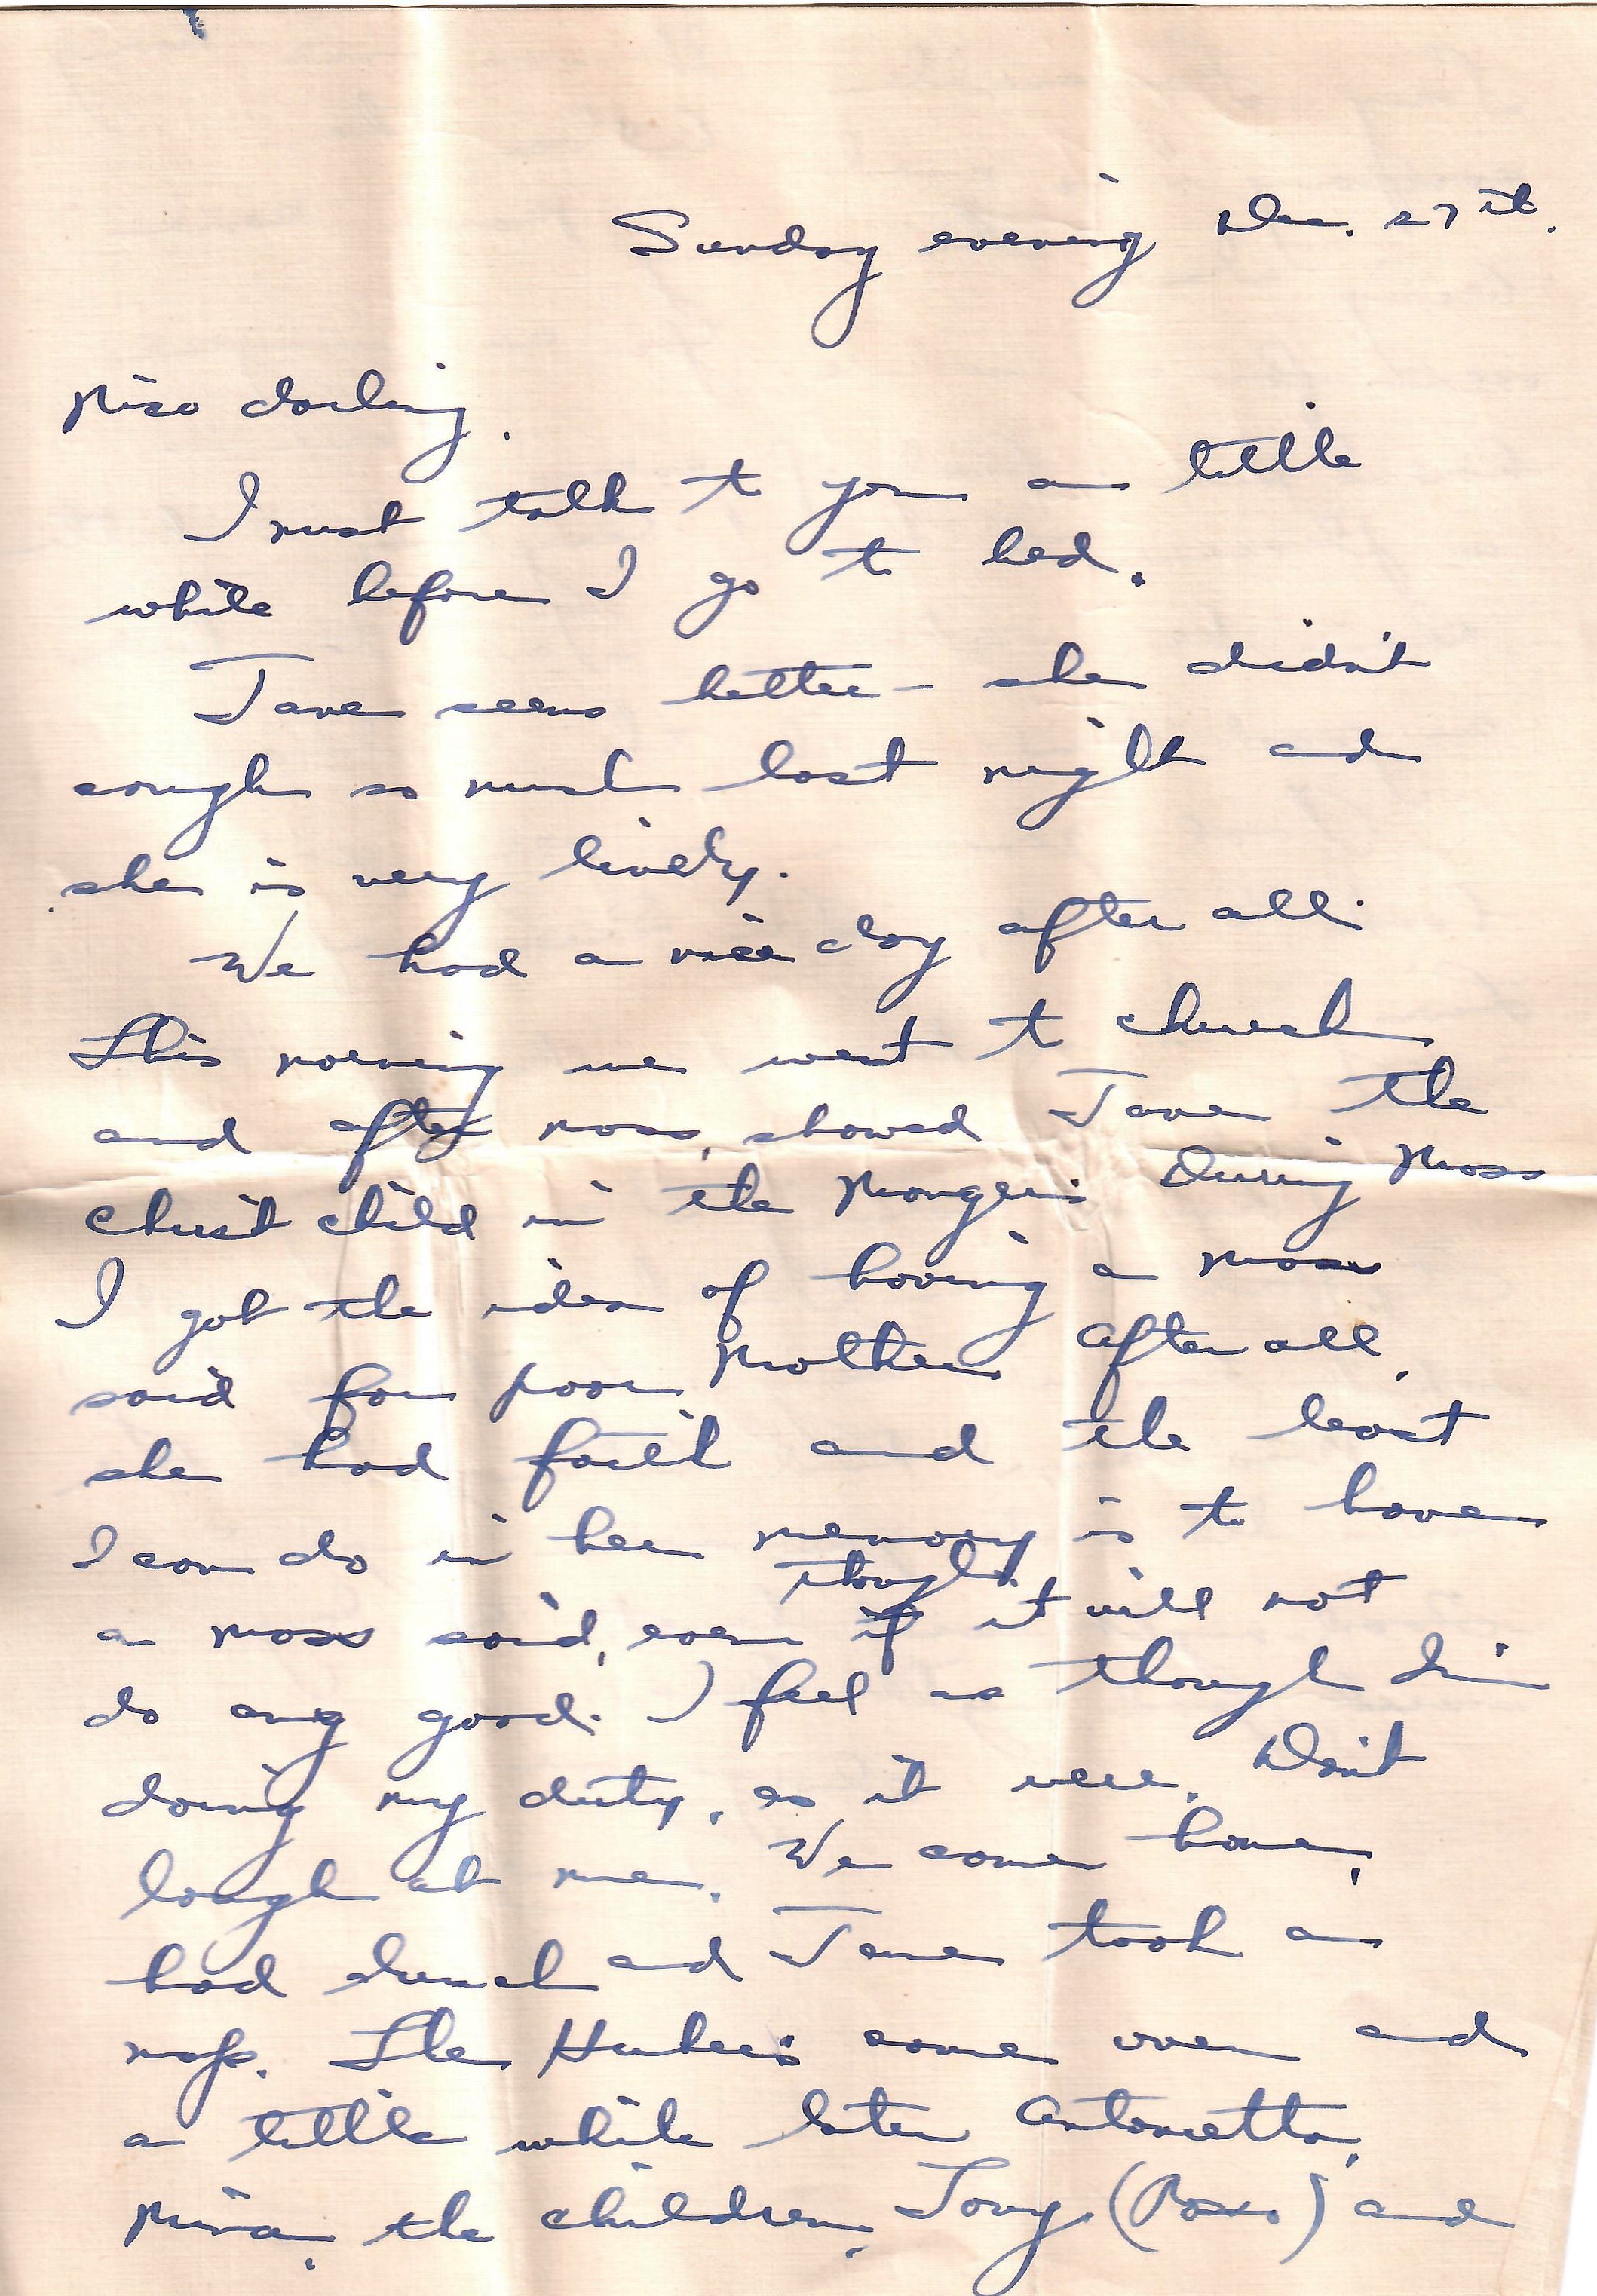 Sunday evening Dec. 27th.
darling,
I must talk to you a little
while before I go to bed.
Jane seems better - she didn't
cough so much last night and
she is very lively.
We had a nice day after all.
This morning we went to church
and after mass, showed Jane the
Christ child in the Manger. During Mass
I got the idea of having a mass
said for poor Mother. After all,
she had faith and the least
I can do in her memory is to have
a mass said, even though it will not
do any good. I feel as though I'm
doing my duty, as it were. Don't
laugh at me. We came home,
had lunch and Jane took a
nap. The came over and
a little while later Antonetta,
the children, Tony (Posa) and